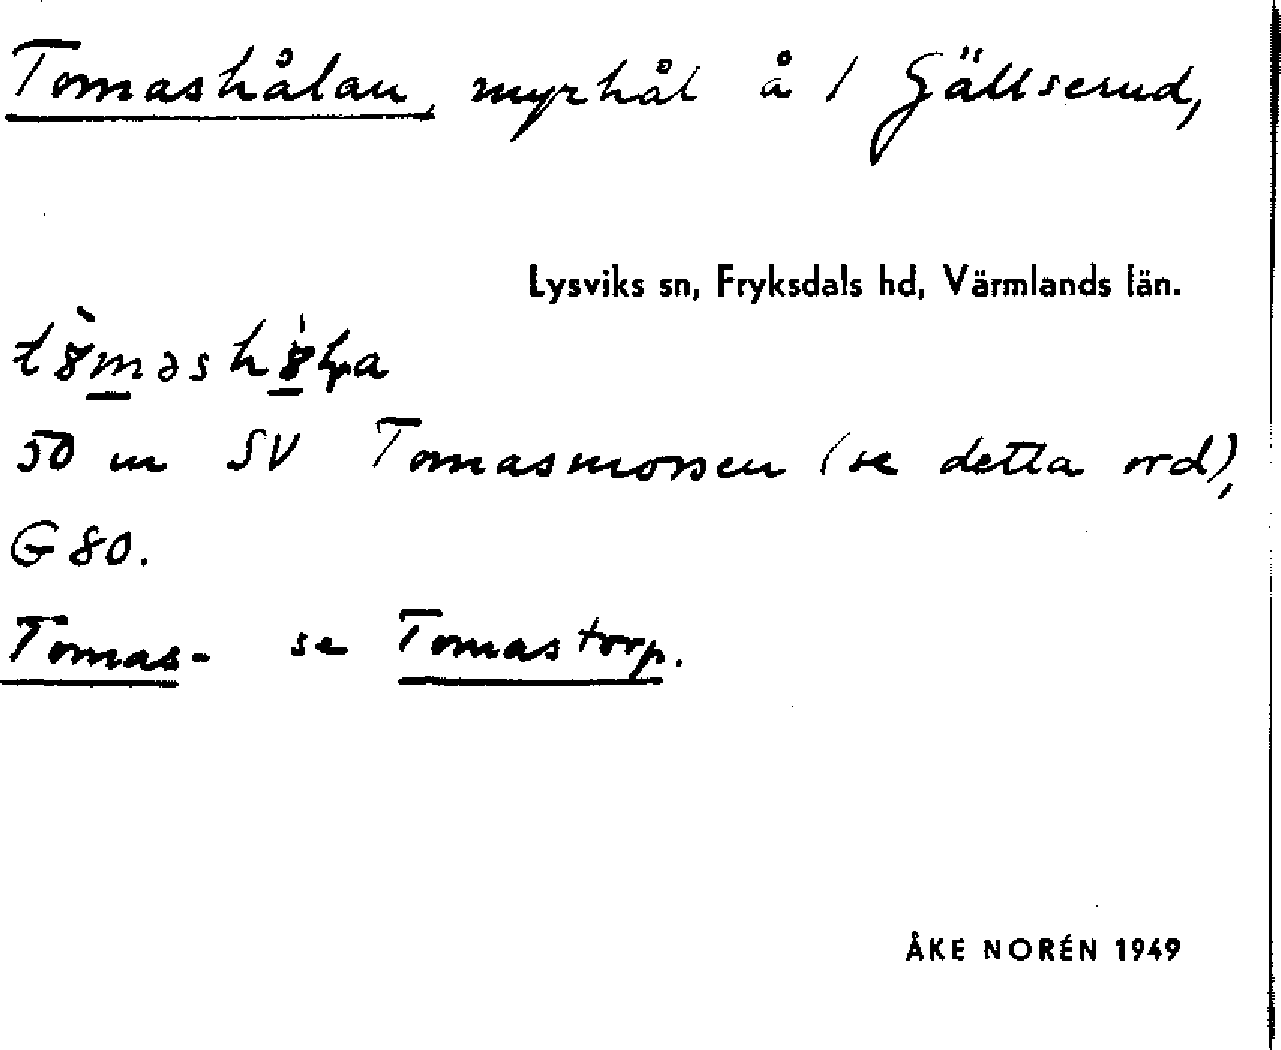 Tomashålan, myrhål å 1 Gällserud,
Lysviks sn, Fryksdals hd, Värmlands län.
50 m SV Tomasmossen (se detta ord),
G 80.
Tomas- se Tomastorp.
ÅKE NORÉN 1949